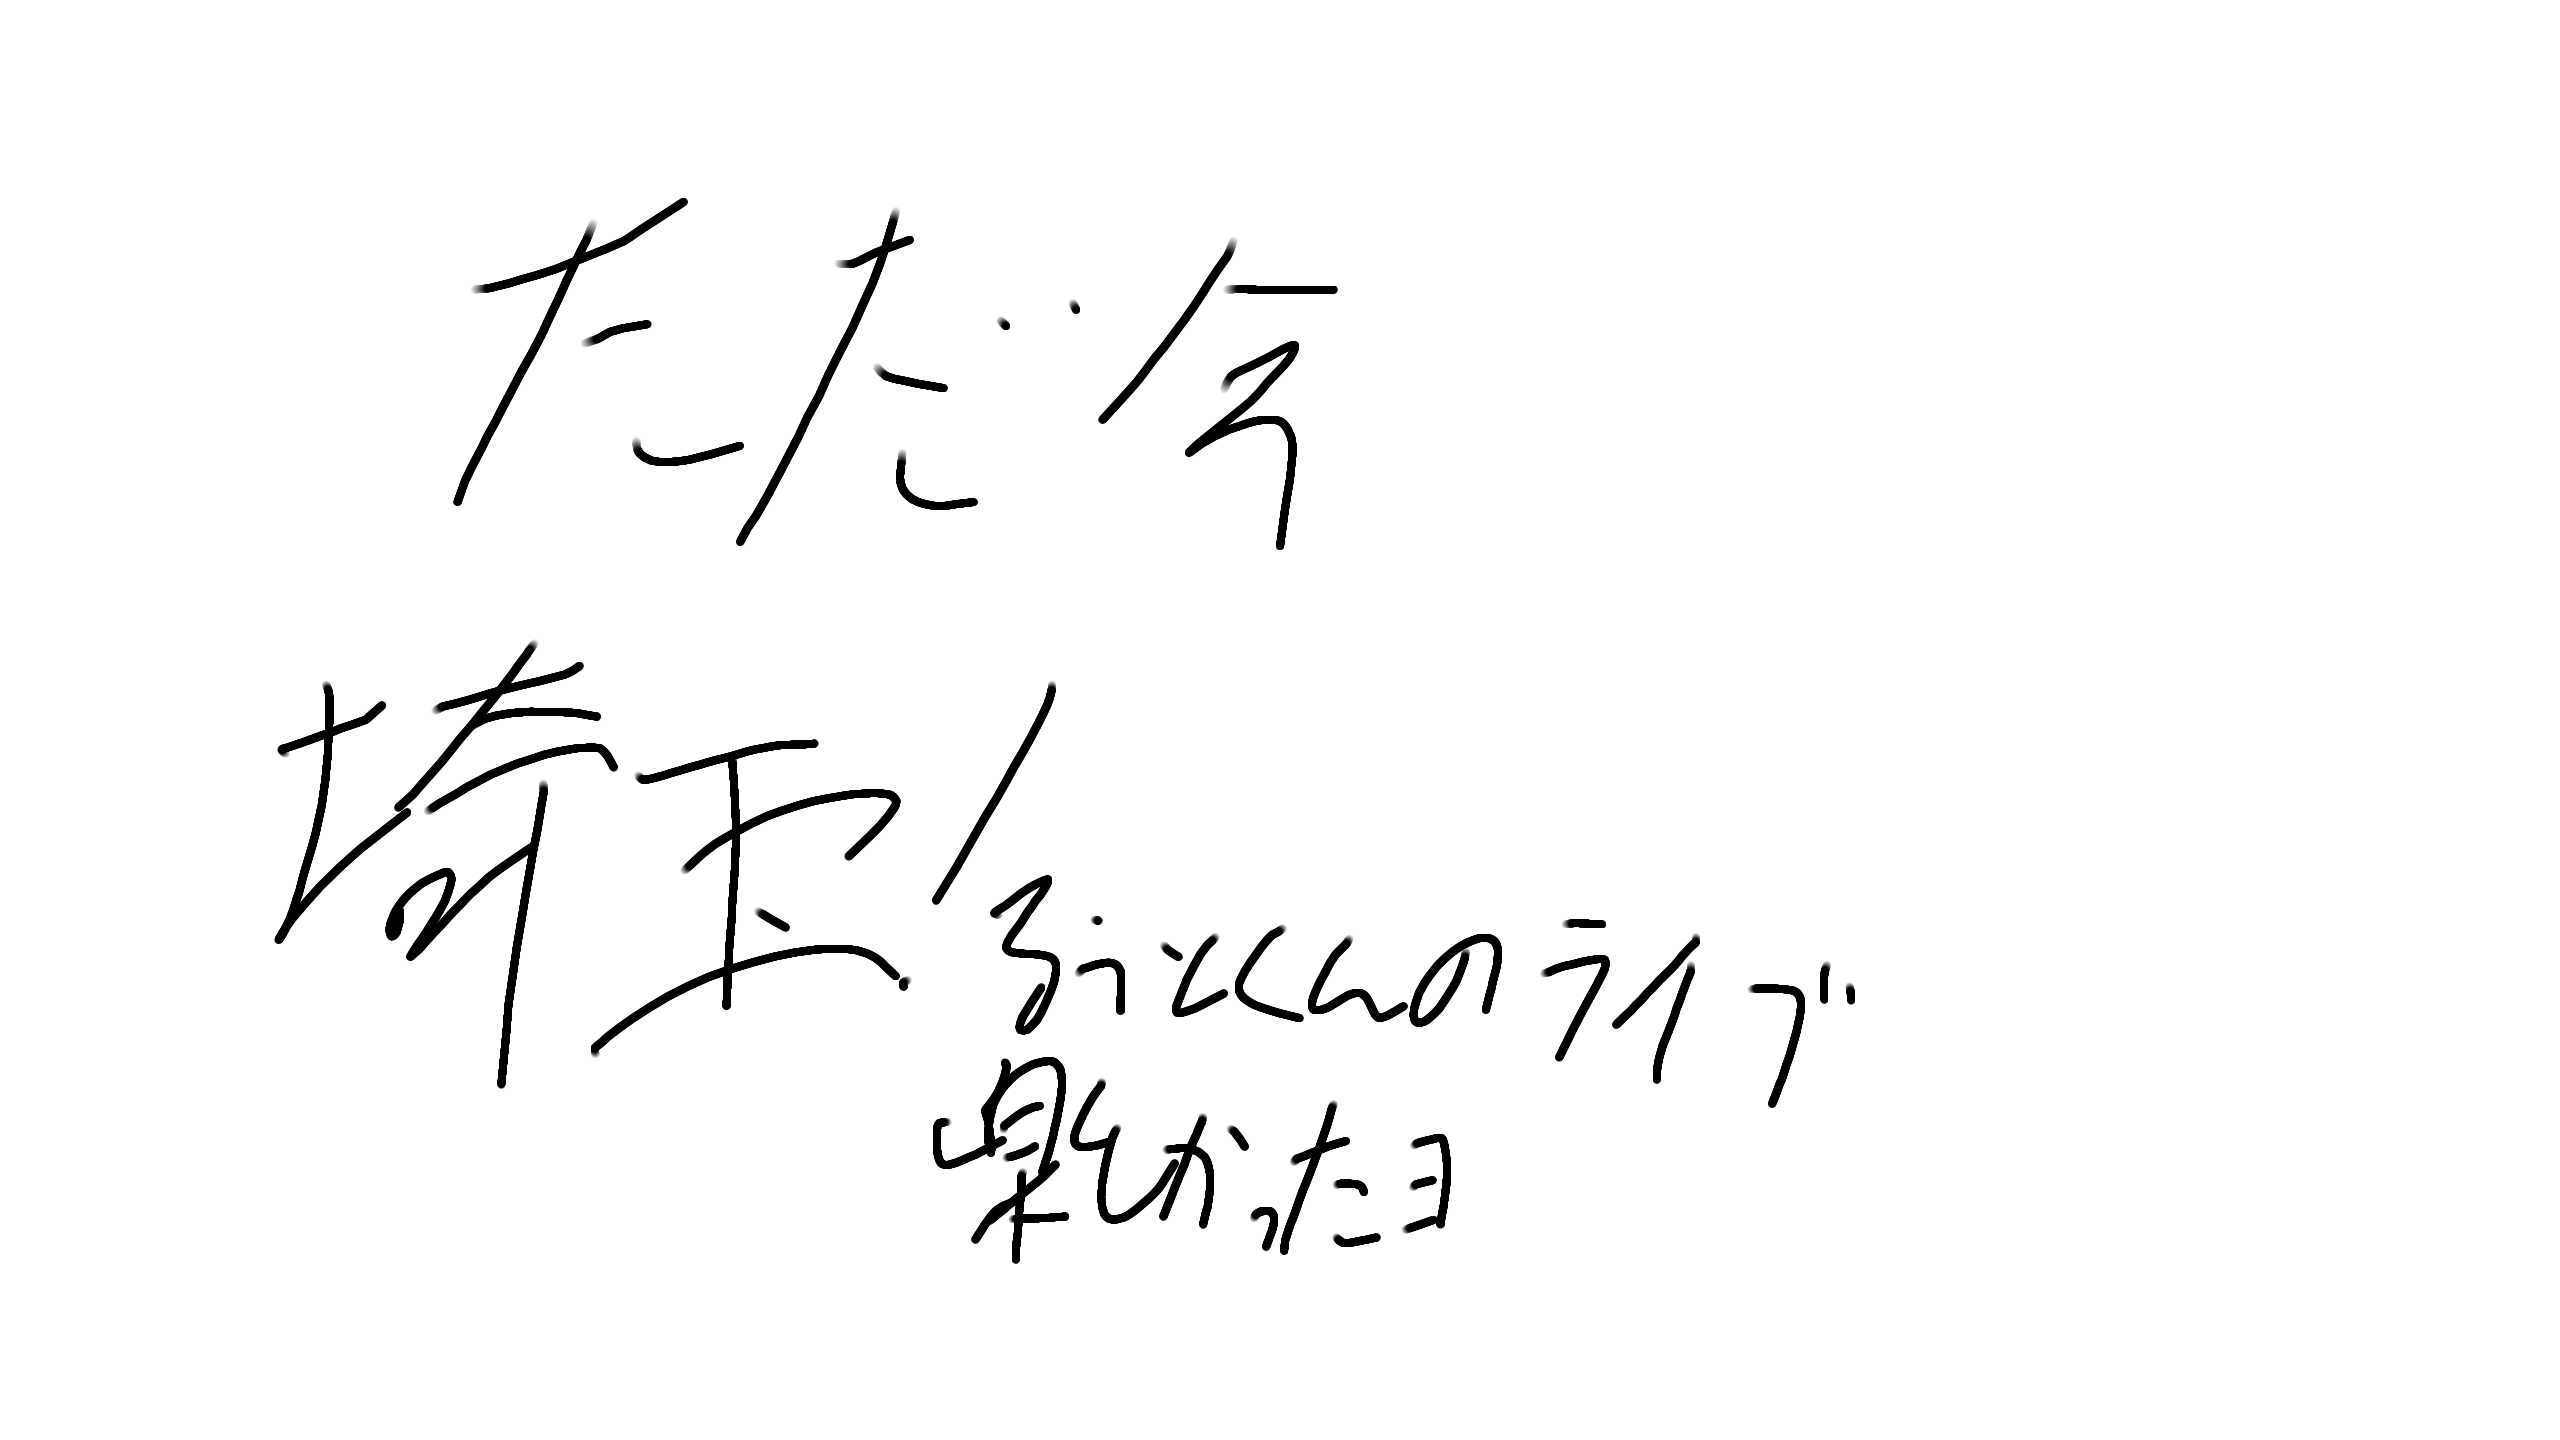 ただ今
埼玉/るぅとくんのライブ
楽しかったヨ